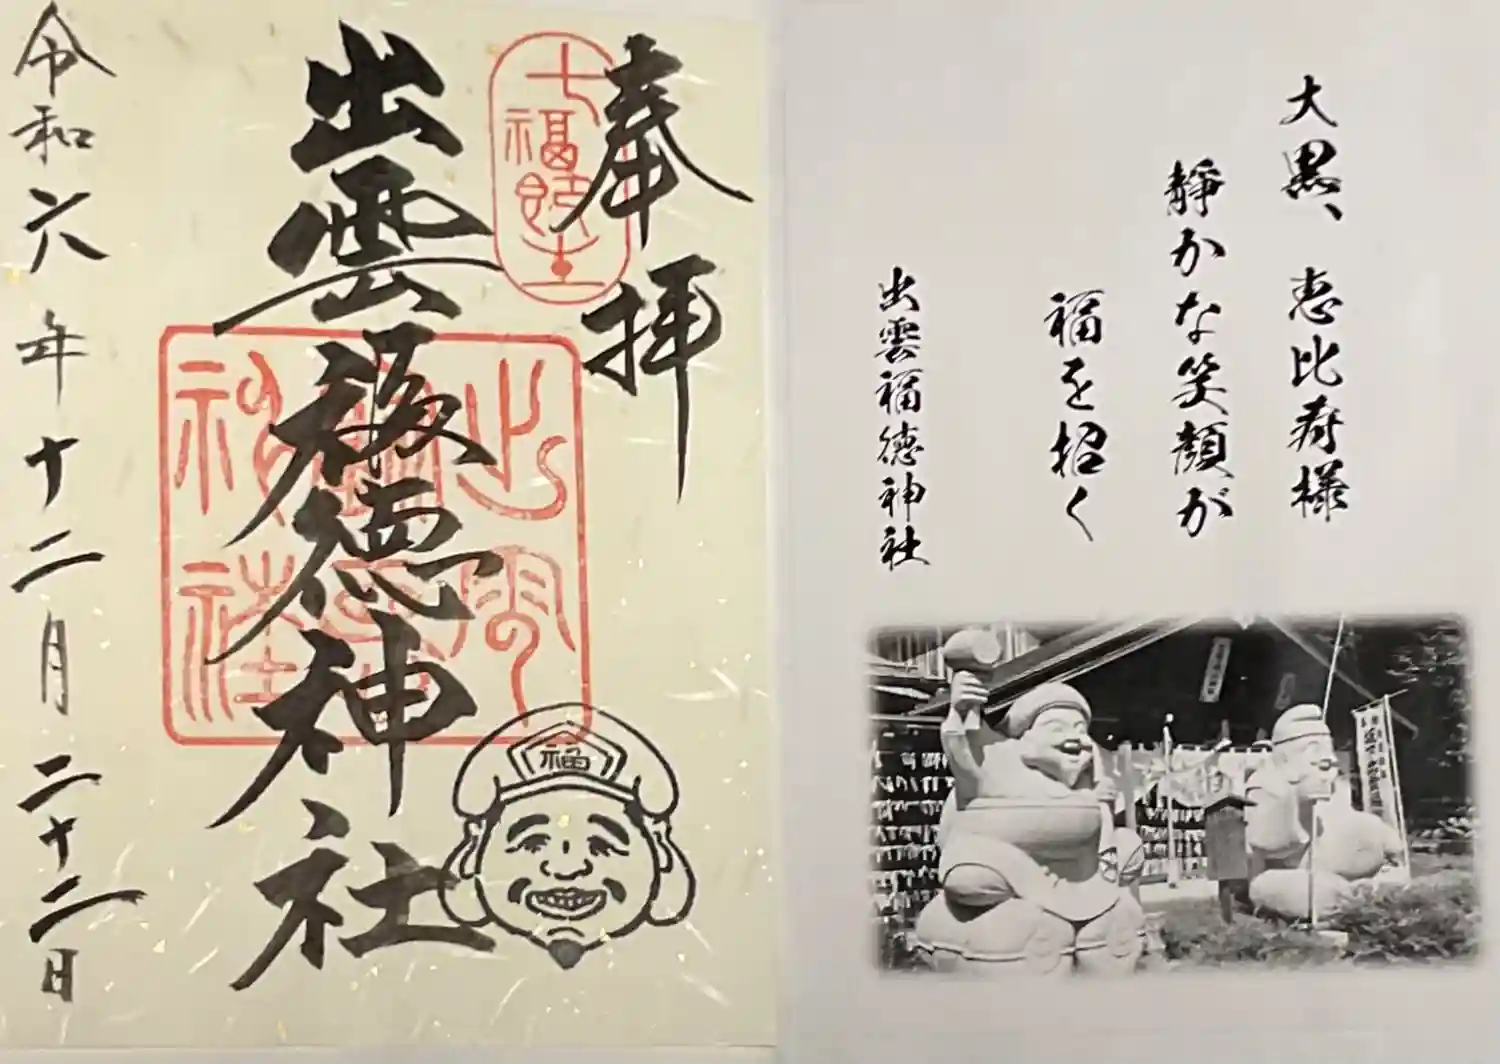 奉拝
七福神
出雲福徳神社
出雲福徳神社
福
令和六年十二月二十二日
大黒、恵比寿様
静かな笑顔が
福を招く
出雲福徳神社